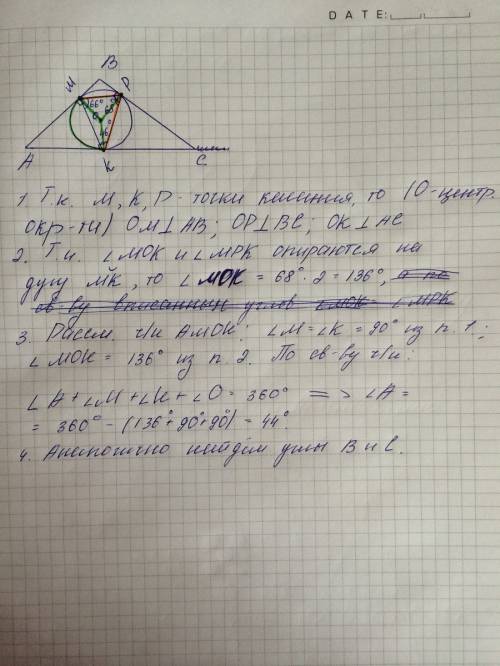 DATE:
B
M
P
66°
68°
O
46°
A
K
C
1. Т.к. M, K, P - точки касания, то (O-центр.
окр-ти) OM⊥AB; OP⊥BC; OK⊥AC
2. Т.к. ∠MOK и ∠MPK опираются на
дугу MK, то ∠MOK = 68°·2 = 136°, а по
св-ву вписанных углов ∠MOK = ∠MPK
3. Рассм. ч/и AMOK: ∠M=∠K = 90° из п. 1;
∠MOK = 136° из п. 2. По св-ву ч/и:
∠A+∠M+∠K+∠O=360° => ∠A=
= 360° - (136°+90°+90°) = 44°.
4. Аналогично найдём углы B и C.